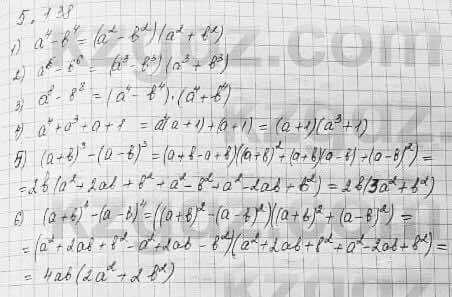 5.138
1) a⁴-b⁴=(a²-b²)(a²+b²)
2) a⁶-b⁶=(a³-b³)(a³+b³)
3) a⁸-b⁸=(a⁴-b⁴)·(a⁴+b⁴)
4) a⁴+a³+a+1=a³(a+1)+(a+1)=(a+1)(a³+1)
5) (a+b)³-(a-b)³=(a+b-a+b)((a+b)²+(a+b)(a-b)+(a-b)²)=
=2b(a²+2ab+b²+a²-b²+a²-2ab+b²)=2b(3a²+b²)
6) (a+b)⁴-(a-b)⁴=((a+b)²-(a-b)²)((a+b)²+(a-b)²)=
=(a²+2ab+b²-a²+2ab-b²)(a²+2ab+b²+a²-2ab+b²)=
=4ab(2a²+2b²)